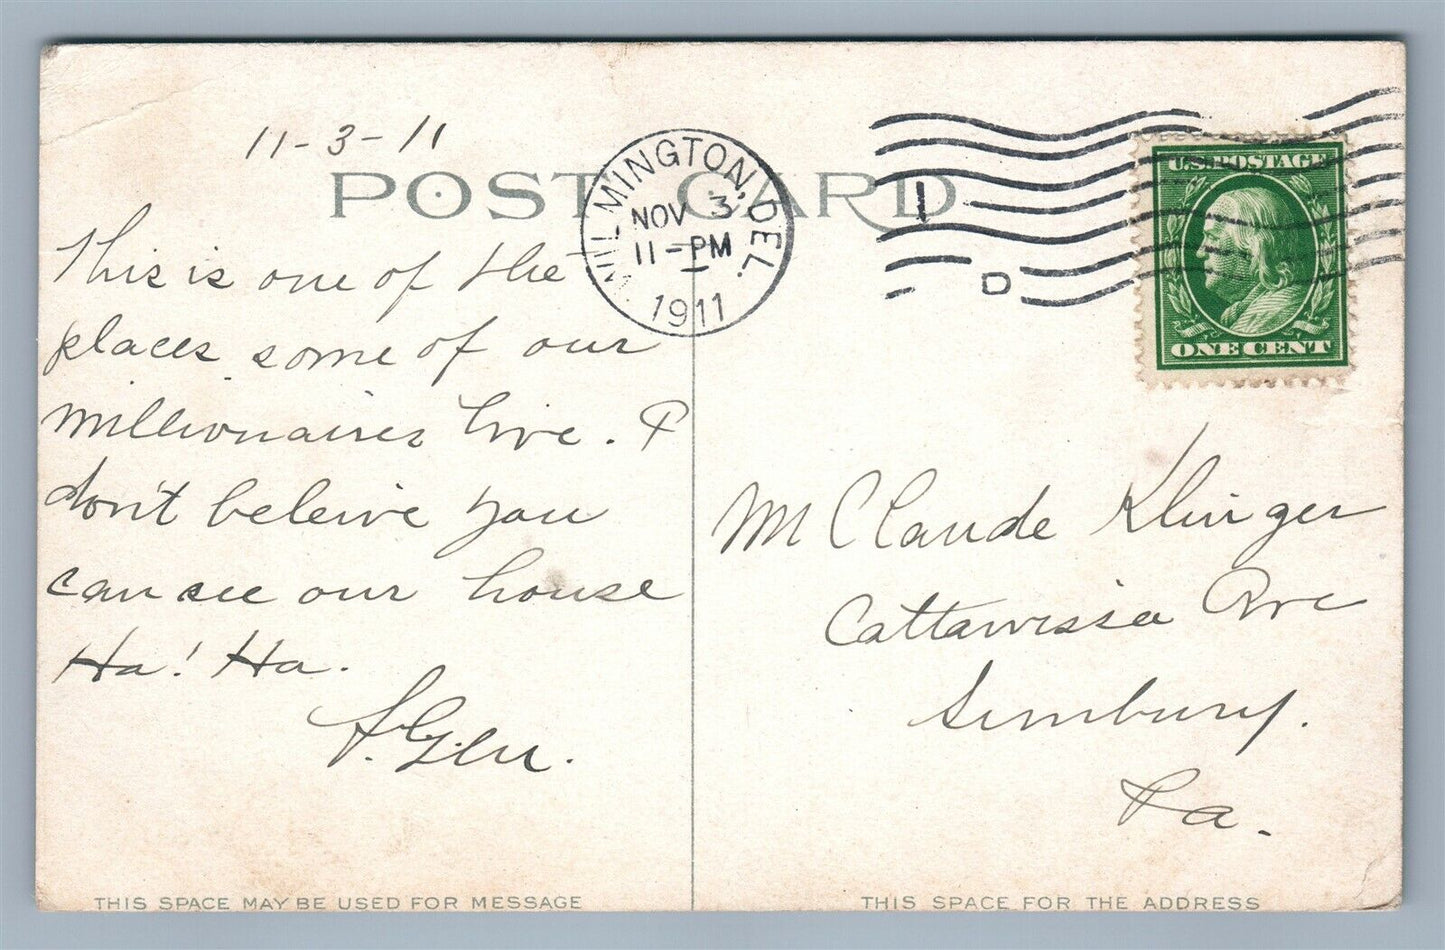 11-3-11
POST CARD
WILMINGTON, DEL.
NOV 3
11-PM
1911
1
D
U.S. POSTAGE
ONE CENT
This is one of the
places some of our
millionaires live. I
don't beleive you
can see our house
Ha! Ha.
M Claude Klinger
Cattawissa Ave
Sunbury.
Pa.
THIS SPACE MAY BE USED FOR MESSAGE
THIS SPACE FOR THE ADDRESS